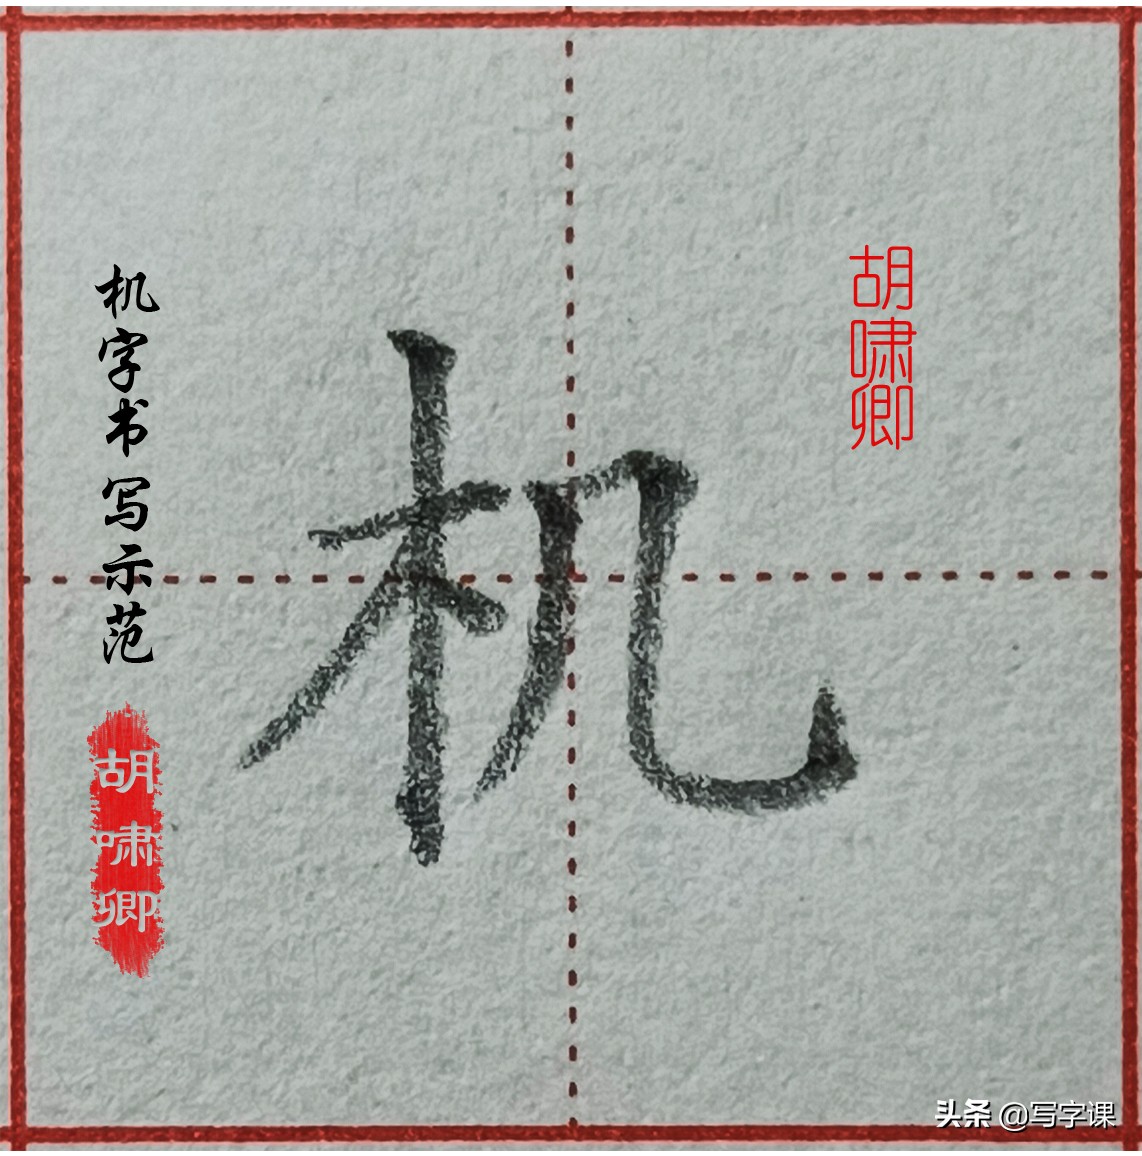 机字书写示范
胡啸卿
机
胡啸卿
头条 @写字课